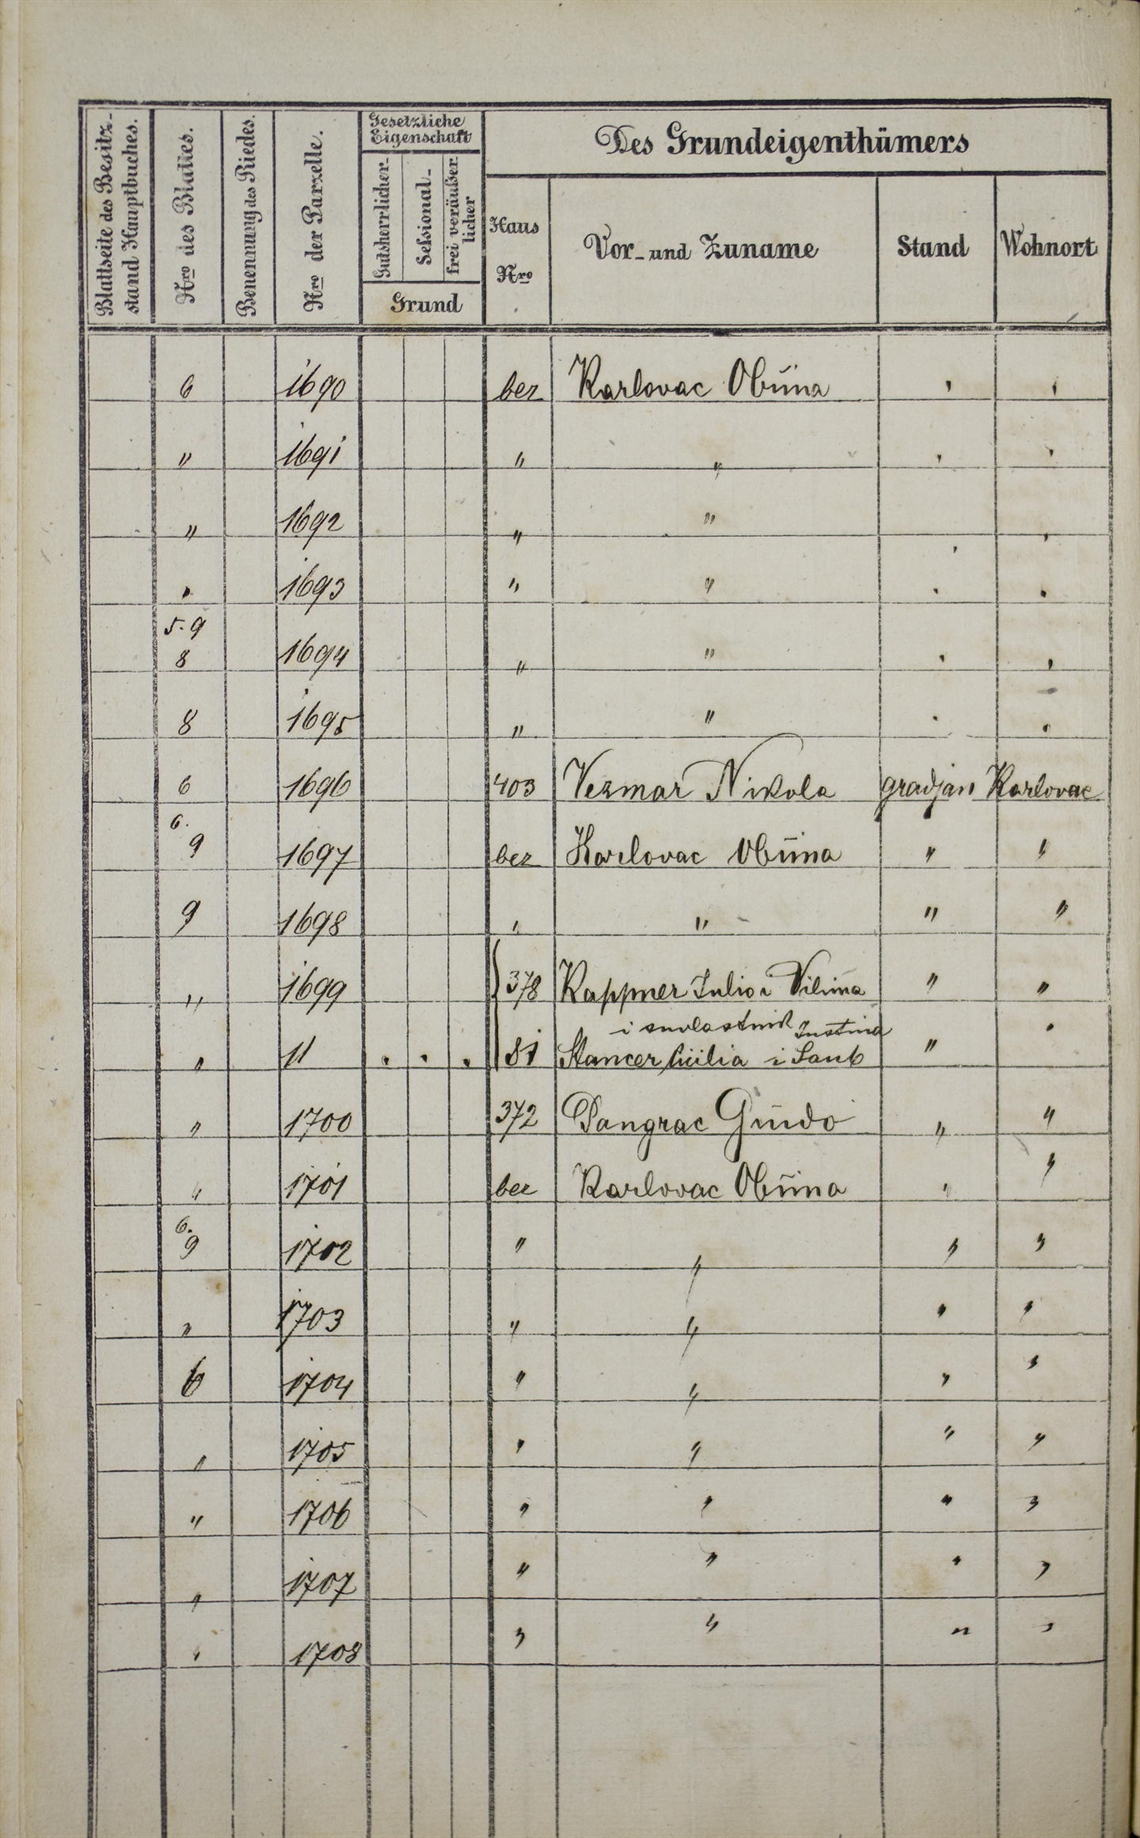 Blattseite des Besitz-stand Hauptbuches. | Nro des Blattes. | Benennung des Riedes. | Nro der Parzelle. | Gesetzliche Eigenschaft | Des Grundeigenthümers
Gutsherrlicher- | Sessional- | frei veräußerlicher | Grund | Haus Nro | Vor- und Zuname | Stand | Wohnort
6 1690 bez Karlovac Obćina , ,
" 1691 " " , ,
" 1692 " " , ,
" 1693 " " . .
5. 9
8 1694 " " , ,
8 1695 " " . .
6 1696 403 Vezmar Nikola gradjan Karlovac
6.
9 1697 bez Karlovac Obćina " "
9 1698 " " " "
" 1699 378 Kappner Julio i Vilima " "
i suvlastnik Justina
" 11 . . . 81 Stancer Cicilia i " "
" 1700 372 Pangrac Guido " "
" 1701 bez Karlovac Obćina " "
6.
9 1702 " " " "
" 1703 " " " "
6 1704 " " " "
" 1705 " " " "
" 1706 " " " "
" 1707 " " " "
" 1708 " " " "